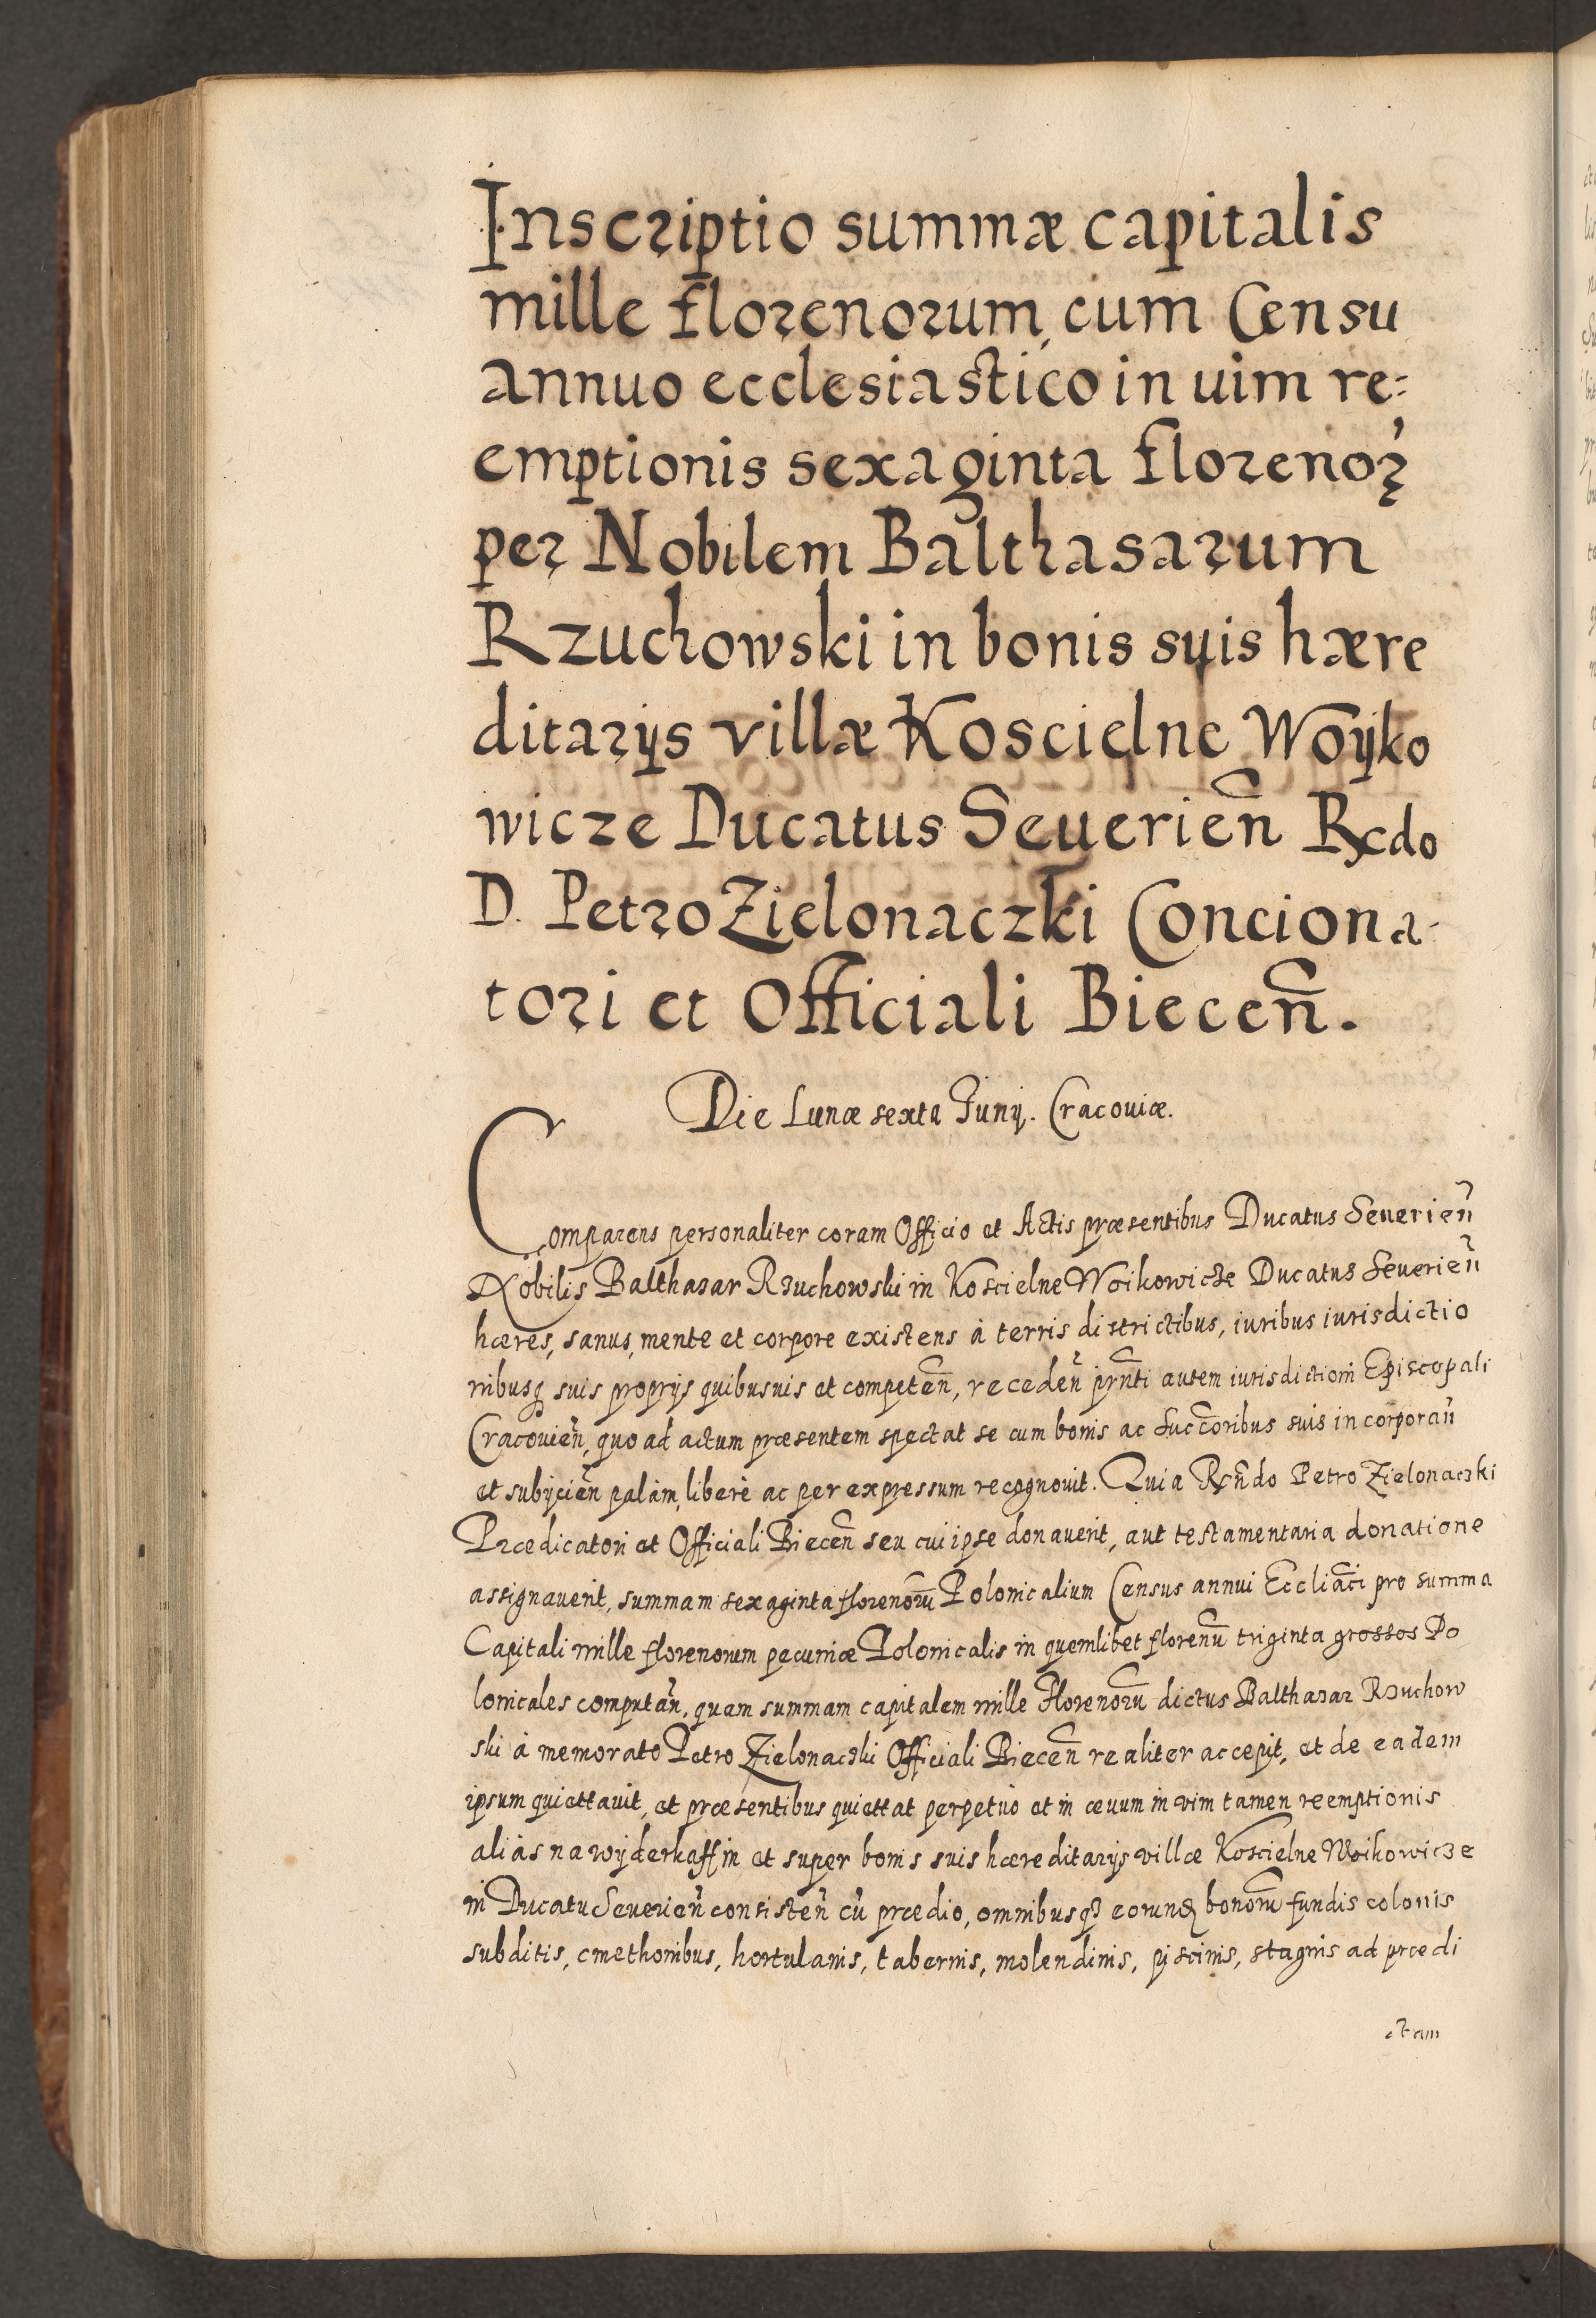 Inscriptio summæ capitalis
mille florenorum, cum Censu
annuo ecclesiastico in uim re=
emptionis sexaginta florenoꝝ
per Nobilem Balthasarum
Rzuchowski in bonis suis hære
ditarijs villæ Koscielne Woÿko
wicze Ducatus Seuerien̄ Rdo
D. Petro Zielonaczki Conciona-
tori et Officiali Biecen̄.
Die Lunæ sexta Junij. Cracouiæ.
Comparens personaliter coram Officio et Actis præsentibus Ducatus Seuerien̄
Nobilis Balthazar Rzuchowski in Koscielne Woikowicze Ducatus Seuerien̄
hæres, sanus, mente et corpore existens à terris districtibus, iuribus iurisdictio
nibusq suis proprijs quibusuis et competen̄, receden̄ prn̄ti autem iurisdictioni Episcopali
Cracouien̄, quo ad actum præsentem spectat se cum bonis ac succ̄oribus suis incorporan̄
et subijcien̄ palàm, liberè ac per expressum recognouit. Quia Rn̄do Petro Zielonaczki
Prædicatori et Officiali Biecen̄ seu cui ipse donauerit, aut testamentaria donatione
assignauerit, summam sexaginta florenorū Polonicalium Census annui Eccliāci pro summa
Capitali mille florenorum pecuniæ Polonicalis in quemlibet florenū triginta grossos Po
lonicales computan̄, quam summam capitalem mille Florenorū dictus Balthazar Rzuchow
ski à memorato Petro Zielonaczki Officiali Biecen̄ realiter accepit, et de eadem
ipsum quiettauit, et præsentibus quiettat perpetuò et in æuum in vim tamen reemptionis
aliàs na wÿderkaff in et super bonis suis hæreditarijs villæ Koscielne Woikowicze
in Ducatu Seuerien̄ consisten̄ cū prædio, omnibusqꝫ eorundꝫ bonorū fundis colonis
subditis, cmethonibus, hortulanis, tabernis, molendinis, piscinis, stagnis ad prædi
ctam